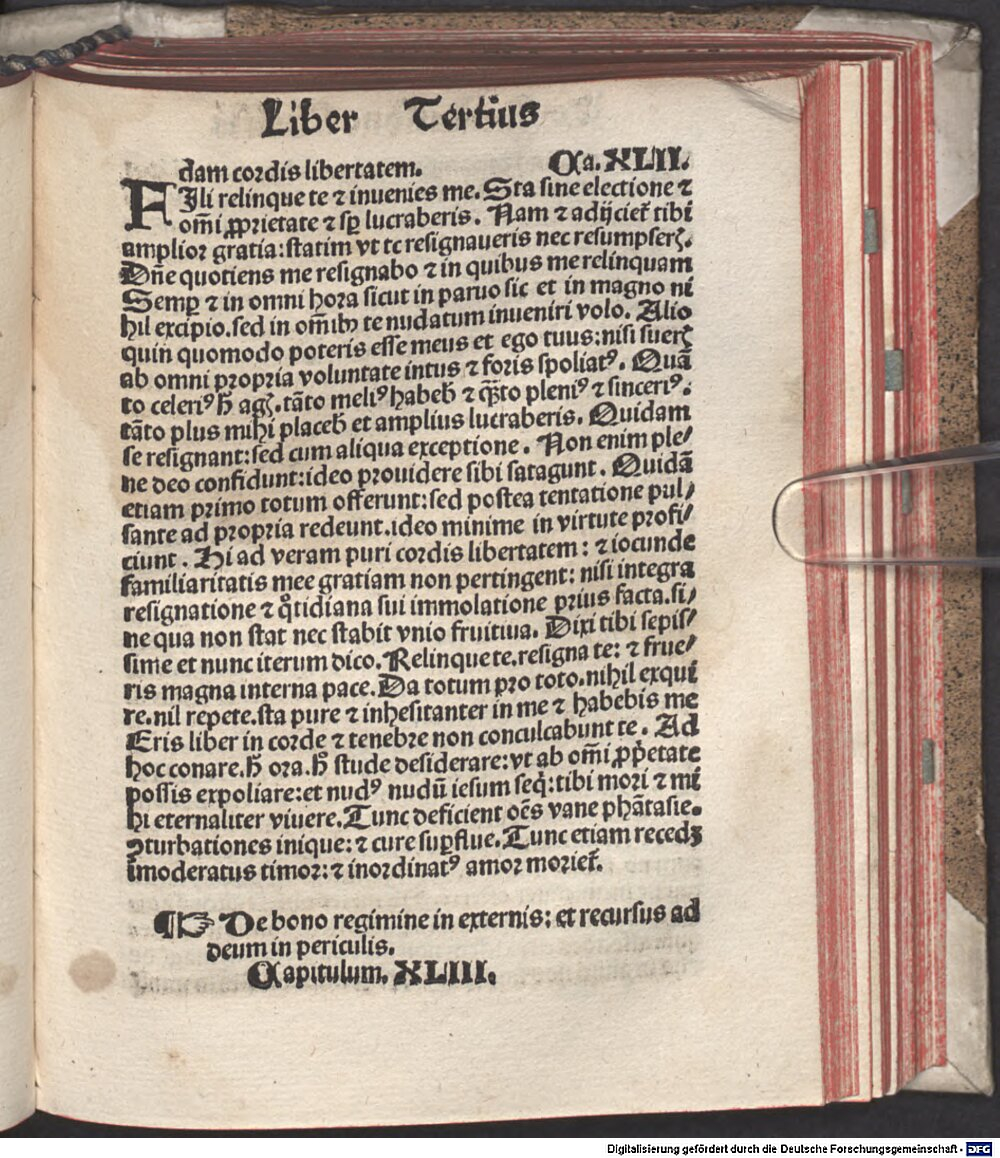 Liber Tertius
dam cordis libertatem. Ca. XLII.
FIli relinque te ⁊ inuenies me. Sta sine electione ⁊
om̄i ꝓprietate ⁊ sꝑ lucraberis. Nam ⁊ adijciet̃ tibi
amplior gratia: statim vt te resignaueris nec resumpserꝭ.
Dñe quotiens me resignabo ⁊ in quibus me relinquam
Semꝑ ⁊ in omni hora sicut in paruo sic et in magno ni
hil excipio. sed in om̄ibꝫ te nudatum inueniri volo. Alio
quin quomodo poteris esse meus et ego tuus: nisi fuerꝭ
ab omni propria voluntate intus ⁊ foris spoliatꝰ. Quā
to celeriꝰ h̃ agꝭ. tāto meliꝰ habeb̃ ⁊ q̃ꝫto pleniꝰ ⁊ sinceriꝰ.
tāto plus mihi placeb̃ et amplius lucraberis. Quidam
se resignant: sed cum aliqua exceptione. Non enim ple⸗
ne deo confidunt: ideo prouidere sibi satagunt. Quidā
etiam primo totum offerunt: sed postea tentatione pul⸗
sante ad propria redeunt. ideo minime in virtute profi⸗
ciunt. Hi ad veram puri cordis libertatem: ⁊ iocunde
familiaritatis mee gratiam non pertingent: nisi integra
resignatione ⁊ q̊tidiana sui immolatione prius facta. si⸗
ne qua non stat nec stabit vnio fruitiua. Dixi tibi sepis⸗
sime et nunc iterum dico. Relinque te. resigna te: ⁊ frue⸗
ris magna interna pace. Da totum pro toto. nihil exqui
re. nil repete. sta pure ⁊ inhesitanter in me ⁊ habebis me
Eris liber in corde ⁊ tenebre non conculcabunt te. Ad
hoc conare. h̃ ora. h̊ stude desiderare: vt ab om̄i ꝓp̃etate
possis expoliare: et nudꝰ nudū iesum seq̃: tibi mori ⁊ mi
hi eternaliter viuere. Tunc deficient oēs vane phātasie.
ꝯturbationes inique: ⁊ cure suꝑflue. Tunc etiam recedꝫ
īmoderatus timor: ⁊ inordinatꝰ amor moriet̃.
¶☞ De bono regimine in externis: et recursus ad
deum in periculis.
Capitulum. XLIII.
Digitalisierung gefördert durch die Deutsche Forschungsgemeinschaft - DFG